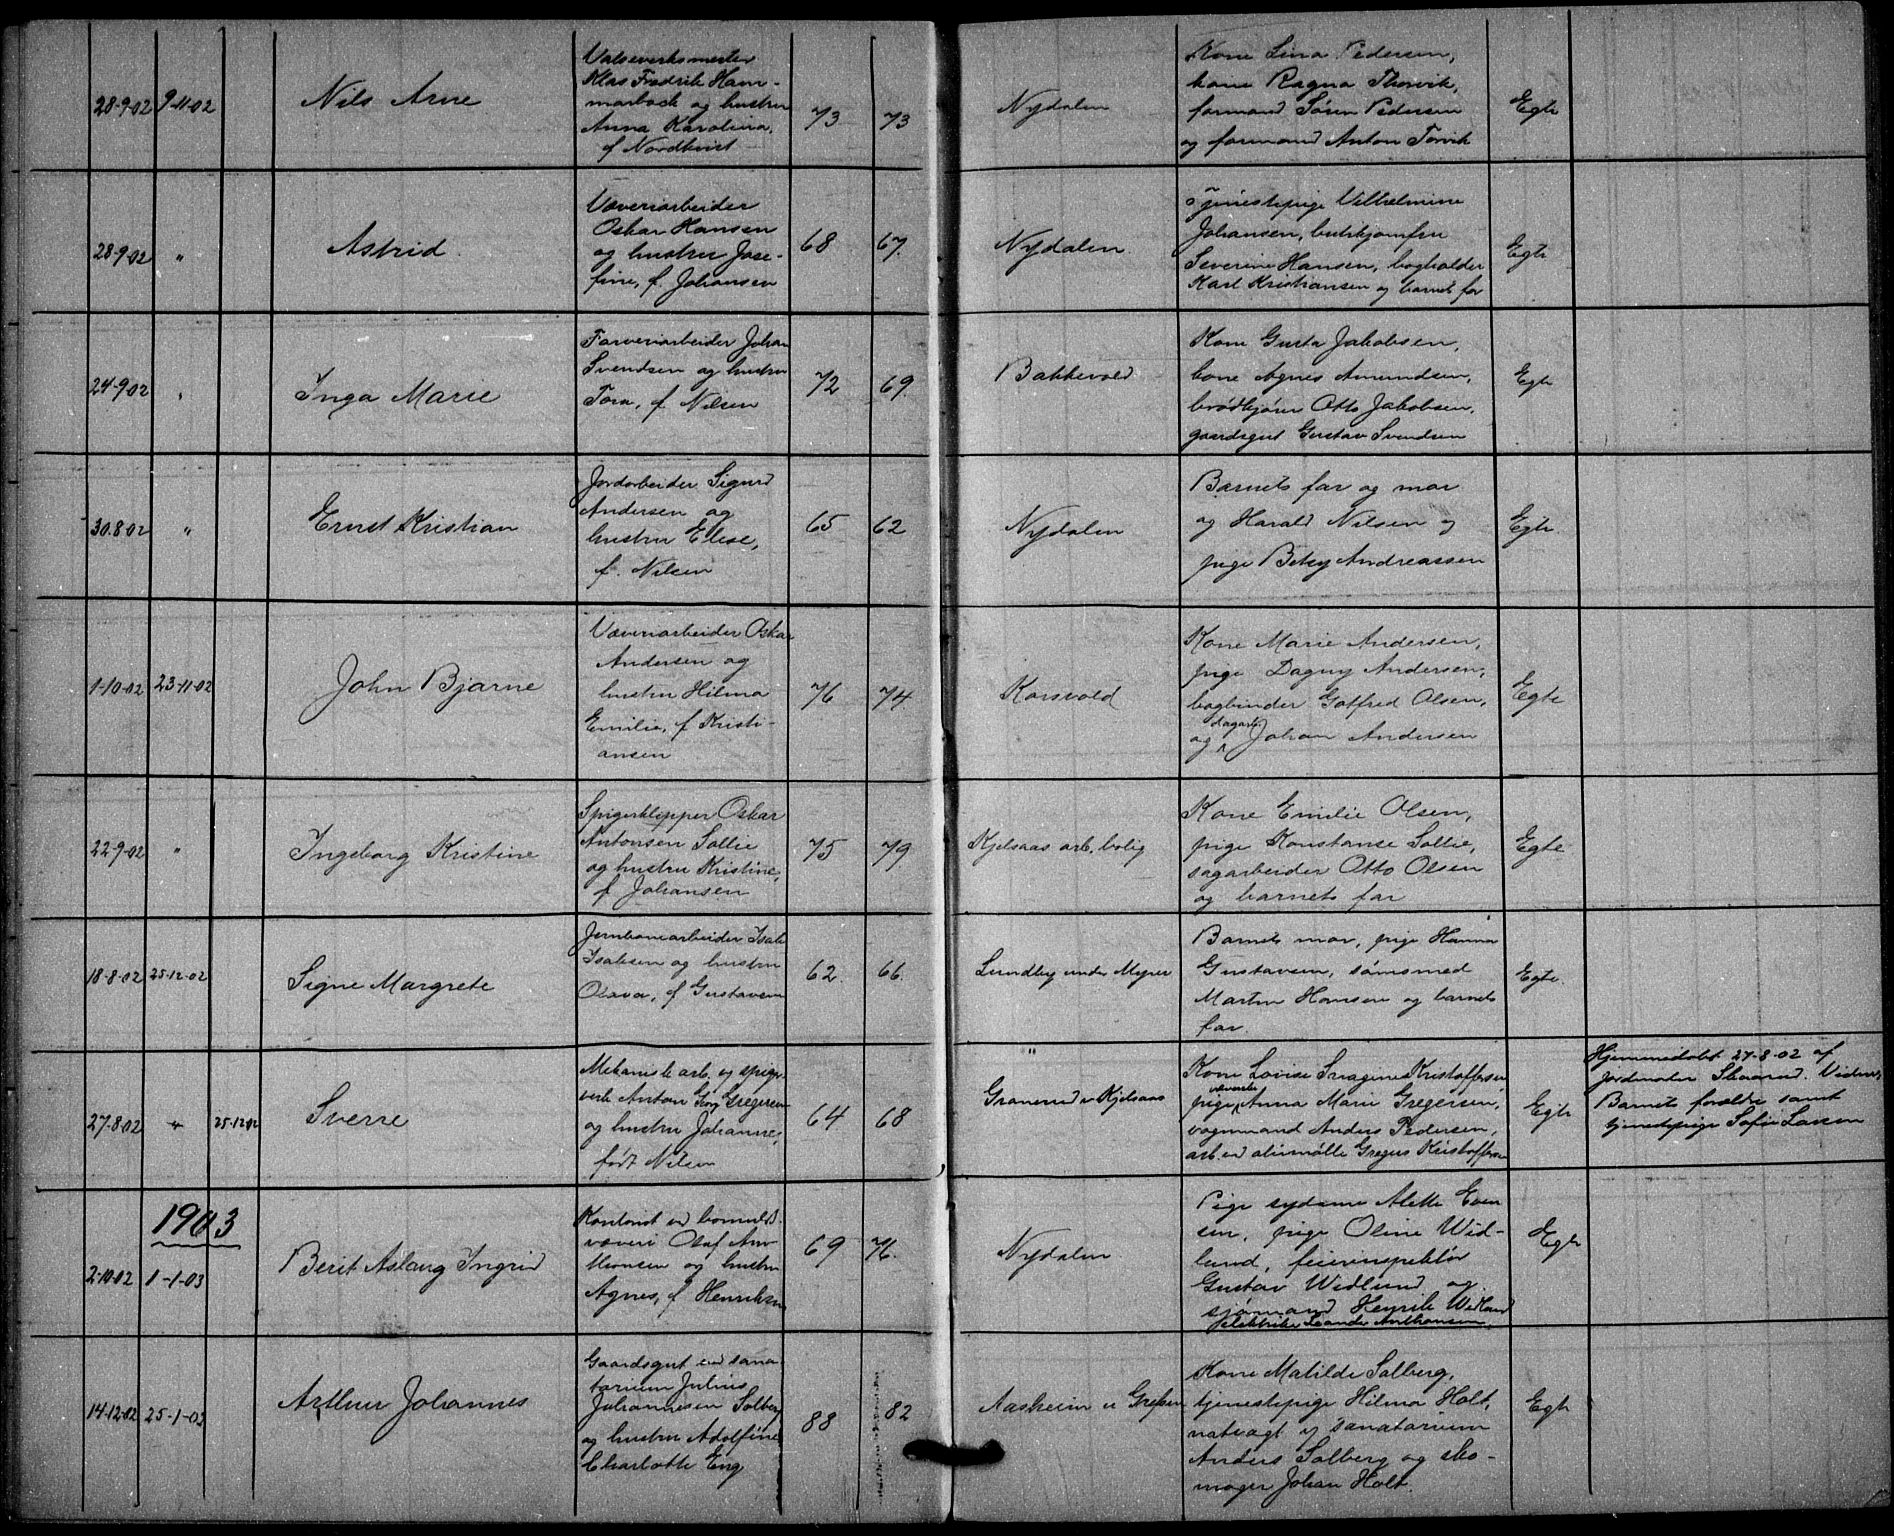 28-9-02 9-11-02 Nils Arne
Valseverksmester
Klas Fredrik Ham-
marbäck og hustru
Anna Karolina,
f Nordkvist
73 73 Nydalen
Kone Lina Pedersen,
kone Ragna Thorvik,
formand Søren Pedersen
og formand Anton Torvik
Egte
28-9-02 " Astrid
Væveriarbeider
Oskar Hansen
og hustru Jose-
fine, f. Johansen
68 67. Nydalen.
Tjenestepige Vilhelmine
Johansen, butikjomfru
Severine Hansen, bogholder
Karl Kristiansen og barnets far
Egte
24-9-02 " Inga Marie
Farveriarbeider Johan
Svendsen og hustru
Tora, f Nilsen
72 69. Bakkevold
Kone Gusta Jakobsen,
kone Agnes Amundsen,
brødkjører Otto Jakobsen,
gaardsgut Gustav Svendsen
Egte
30.8-02 " Ernst Kristian
Jordarbeider Sigurd
Andersen og
hustru Elise,
f. Nilsen
65 62 Nydalen
Barnets far og mor
og Harald Nilsen og
pige Betsy Andreassen
Egte.
1-10-02 23-11-02 John Bjarne
Væveriarbeider Oskar
Andersen og
hustru Hilma
Emilie, f Kristi-
ansen
76 74. Korsvold
Kone Marie Andersen,
pige Dagny Andersen,
bogbinder Gotfred Olsen,
og dagarb. Johan Andersen
Egte
22-9-02 " Ingeborg Kristine
Spigerklipper Oskar
Antonsen Sollie
og hustru Kristine,
f Johansen
75 79 Kjelsaas arb. bolig
Kone Emilie Olsen,
pige Konstanse Sollie,
sagarbeider Otto Olsen
og barnets far
Egte
18-8-02 25-12-02 Signe Margrete
Jernbanearbeider Isak
Isaksen og hustru
Olava, f Gustavsen
62. 66. Lundby under Myrer
Barnets mor, pige Hanna
Gustavsen, sømsmed
Martin Hansen og barnets
far.
Egte.
27-8-02 " 25-12-02 Sverre
Mekanisk arb. og spiger-
verk Anton Georg Gregersen
og hustru Johanne,
født Nilsen
64 68
"
v Kjelsaas
Kone Lovise Kristoffersen
pige væverske Anna Marie Gregersen,
vognmand Anders Pedersen,
arb. ved oliemølle Gregers Kristoffersen
Egte
Hjemmedøbt 27-8-02 af
jordmoder
Barnets forældre samt
tjenestepige Sofie Larsen
1903
2-10-02 1-1-03 Berit Aslaug Ingrid
Kontorist ved bomulds-
væveri Olaf An-
thonsen og hustru
Agnes, f Henriksen
69 76. Nydalen
Pige sydame Alette Even-
sen, pige Oline Wid-
lund, feierinspektør
Gustav Widlund og
sjømand Henrik Widlund
Anthonsen
Egte
14-12-02 25-1-03 Arthur Johannes
Gaardsgut ved sana-
torium Julius
Johannesen Solberg
og hustru Adolfine
Charlotte Eng
88 82 Aasheim v Grefsen
Kone Matilde Solberg,
tjenestepige Hilma Holt,
natvagt v sanatorium
Anders Solberg og sko-
mager Johan Holt.
Egte